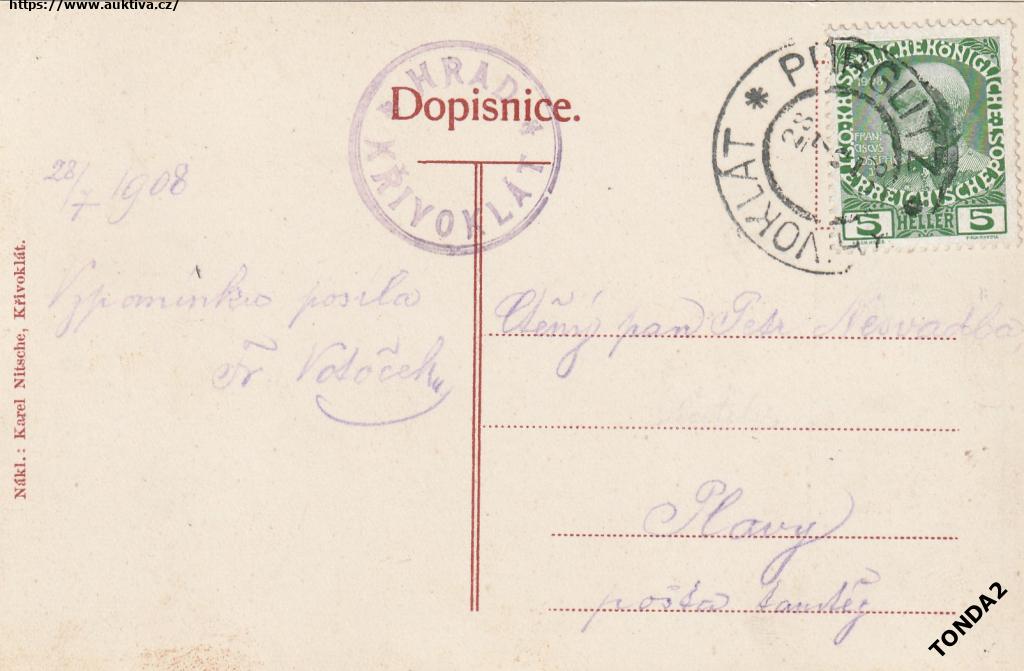 https://www.auktiva.cz/
HRAD
KŘIVOKLÁT
Dopisnice.
PÜRGLITZ
KŘIVOKLÁT
KAISERLICHE KÖNIGLICHE ÖSTERREICHISCHE POST
1908
FRAN
CISCUS
JOSEPHUS
5 HELLER 5
28/7 1908
Vzpomínku posílá
Fr. Votoček
Ctěný pan Petr Nesvadba,
Plavy
pošta tamtéž
Nákl.: Karel Nitsche, Křivoklát.
TONDA2